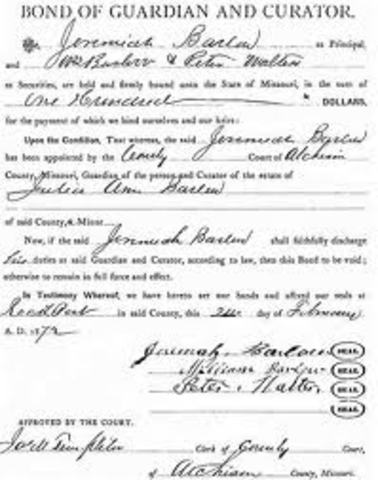 BOND OF GUARDIAN AND CURATOR.
We, Jeremiah Barlow as Principal,
and Wm Barlow & Peter
as Securities, are held and firmly bound unto the State of Missouri, in the sum of
One Hundred DOLLARS,
for the payment of which we bind ourselves and our heirs:
Upon the Condition, That whereas, the said Jeremiah Barlow
has been appointed by the County Court of Atchison
County, Missouri, Guardian of the person and Curator of the estate of
Julia Ann Barlow
of said County, a Minor
Now, if the said Jeremiah Barlow shall faithfully discharge
his duties as said Guardian and Curator, according to law, then this Bond to be void;
otherwise to remain in full force and effect.
In Testimony Whereof, we have hereto set our hands and affixed our seals at
Rock Port in said County, this day of February
A. D. 1872
Jeremiah Barlow SEAL
William Barlow SEAL
Peter SEAL
SEAL
APPROVED BY THE COURT.
Templeton Clerk of County Court,
of Atchison County, Missouri.